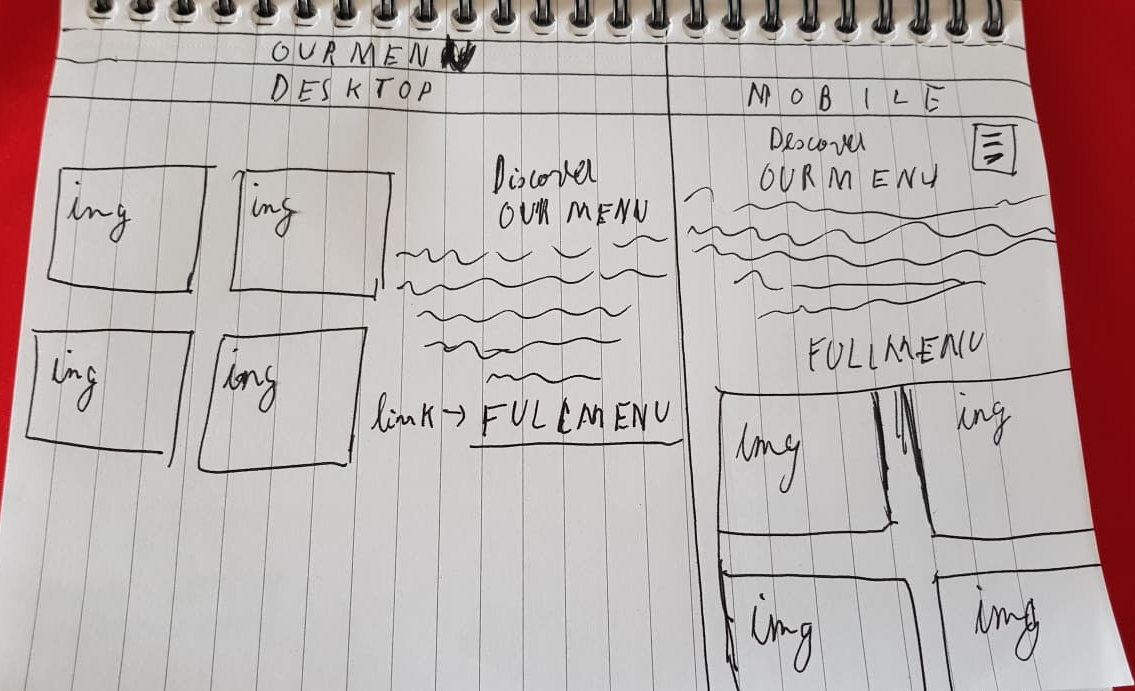 OUR MENU
DESKTOP
img
img
img
img
Discover
OUR MENU
link → FULL MENU
MOBILE
Discover
OUR MENU
FULL MENU
img
img
img
img